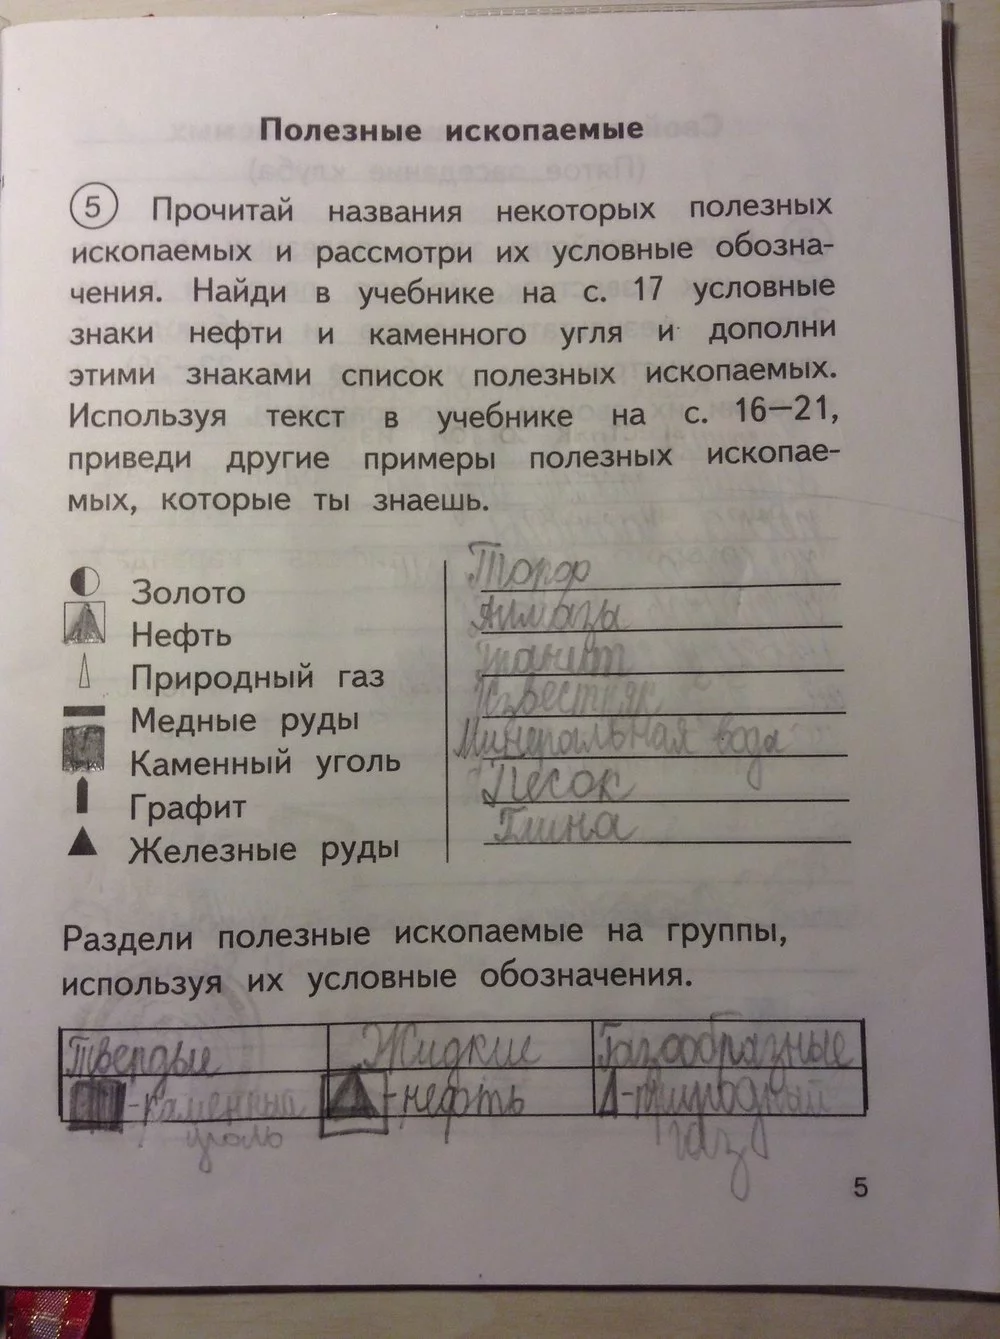 Полезные ископаемые
5 Прочитай названия некоторых полезных
ископаемых и рассмотри их условные обозна-
чения. Найди в учебнике на с. 17 условные
знаки нефти и каменного угля и дополни
этими знаками список полезных ископаемых.
Используя текст в учебнике на с. 16—21,
приведи другие примеры полезных ископае-
мых, которые ты знаешь.
Золото
Нефть
Природный газ
Медные руды
Каменный уголь
Графит
Железные руды
Торф
Алмазы
Гранит
Известняк
Минеральная вода
Песок
Глина
Раздели полезные ископаемые на группы,
используя их условные обозначения.
Твердые Жидкие Газообразные
-каменный -нефть -природный
уголь газ
5